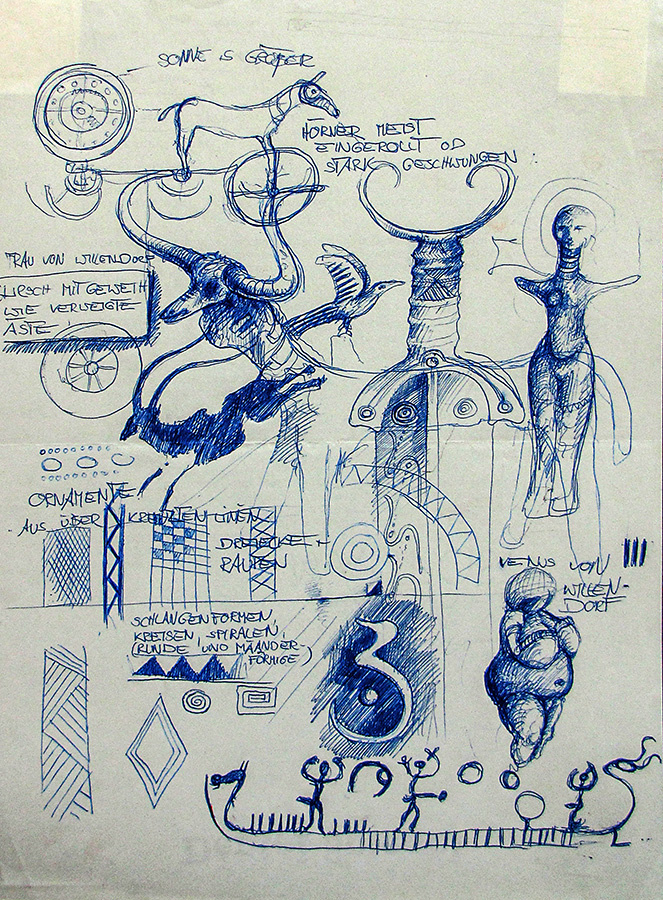 SONNE IS GRÖßER
HÖRNER MEIST
EINGEROLLT OD
STARK GESCHWUNGEN :
FRAU VON WILLENDORF
HIRSCH MIT GEWEIH
WIE VERWEIGTE
ÄSTE !
ORNAMENTE,
AUS ÜBERKREUZTEN LINIEN
DREIECKE +
RAUTEN
VENUS VON
WILLEN-
DORF
SCHLANGENFORMEN,
KREISEN, SPIRALEN,
(RUNDE UND MÄANDER-
FÖRMIGE)